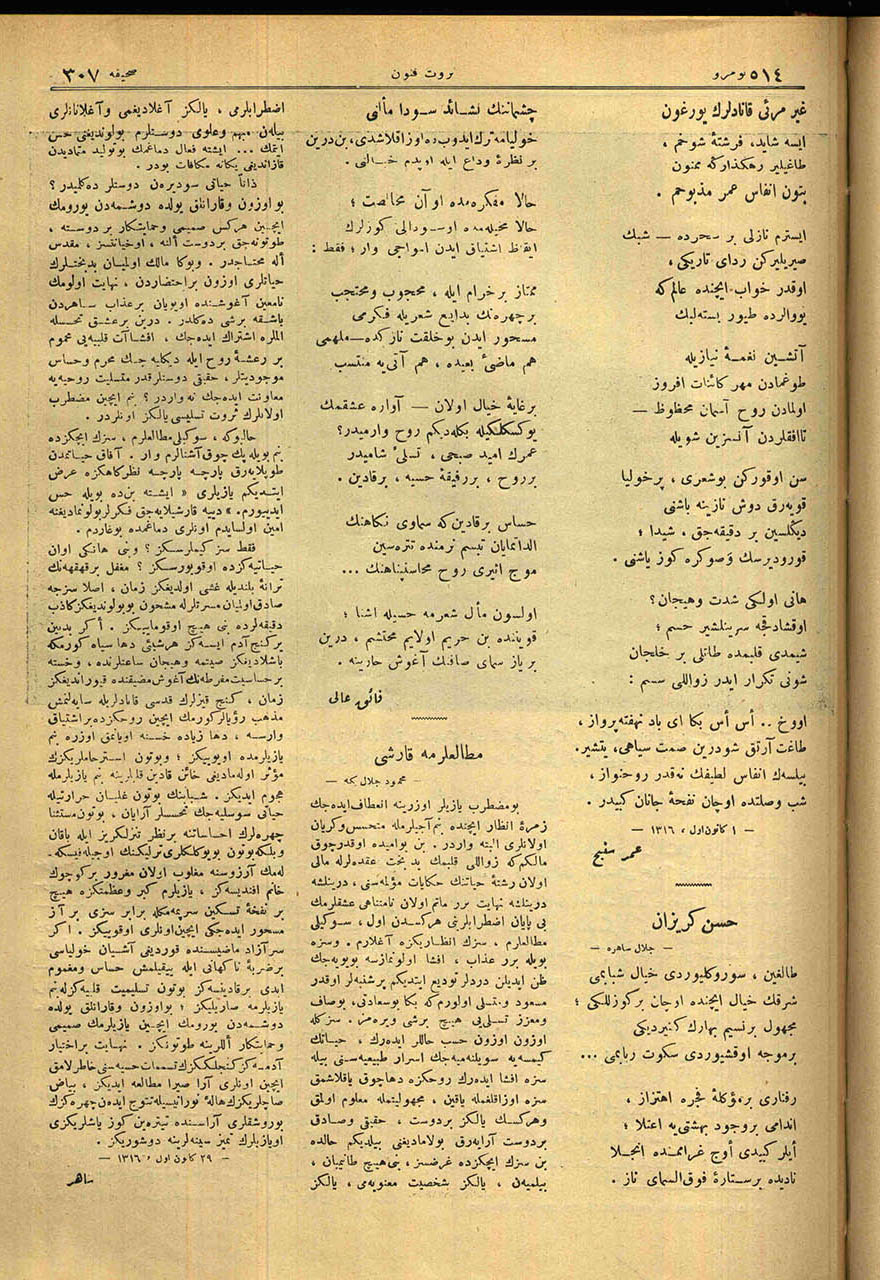 نومرو ٥١٤
ثروت فنون
صحیفه ٣٠٧
غیر مرئی قانادلرك یورغون
ایسه شاید، فرشتهٔ شوخم ،
طاغیلیر رهكذاركه ممنون
بتون انفاس عمر مذبوحم .
ایسترم نازلی بر سحرده — شبك
صیریلیركن ردای تاریكی،
اوقدر خواب ایچنده عالم كه
یووالرده طیور بسته لبك
آتشین نغمهٔ نیازیله
طوغمادن مهر كائنات افروز
اولمادن روح آسمان محظوظ —
تا افقلردن آنسزین شویله
سن اوقوركن بو شعری ، پرخولیا
قویه رق دوش نازینه باشنی
دیكلسین بر دقیقه جق ، شیدا ؛
قورودیرسك وصوكره كوز یاشنی .
هانی اولكی شدت وهیجان؟
اوقشادقجه سرینلشیر حسم ؛
شیمدی قلبمده طاتلی بر خلجان
شونی تكرار ایدر زواللی سسم :
اووخ .. أس أس بكا ای باد نهفته پرواز ،
طاغت آرتق شو درین صمت سیاهی، یتشیر.
بیلسه ك انفاس لطیفك نه قدر روحنواز ،
شب وصلتده اوچان نفحهٔ جانان كبیدر .
— ١ كانون اول ، ١٣١٦ —
عمر سفیح
حسن كریزان
— جلال ساهره —
طالغین ، سوروكلیوردی خیال شبابمی
شرقك خیال ایچنده اوچان بر كوزللكی ؛
مجهول بر نسیم بهارك كبی دیكی
بر موجه اوقشیوردی سكوت ربابمی ...
رفتاری بر مؤكلهٔ فجره اهتزاز ،
اندامی بر وجود بهشتی یه اعتلا ؛
أیلر كبیدی أوج غراممده انجلا
نادیده بر ستارهٔ فوق السمای ناز .
چشماننك نشائد سودا مآلنی
خولیامه ترك ایدوب ده اوزاقلاشدی، بن درین
بر نظرهٔ وداع ایله اوپدم خیالنی .
حالا مفكره مده او آن مخالصت ؛
حالا مخیله مده او سودالی كوزلرك
ایقاظ اشتیاق ایدن امواجی وار ؛ فقط :
ممتاز بر خرام ایله ، محجوب ومحتجب
بر چهره نك بدایع شعریله فكرمی
مسحور ایدن بو خلقت نازكده — ملهمی
هم ماضیٔ بعیده ، هم آتی یه منتسب
بر غایهٔ خیال اولان — آواره عشقمك
یوكسكلكیله بكله دیكم روح وارمیدر؟
عمرك امید صبحی ، تسلیٔ شامیدر
بر روح ، بر رفیقهٔ حسیه ، بر قادین .
حساس بر قادین كه سماوی نكاهنك
الداتمایان تبسم نرمنده تتره سین
موج اثیری روح محاسنپناهنك ...
اولسون مآل شعرمه حسیله آشنا ؛
قوینده بن حریم اولایم محتشم ، درین
بر یاز سمای صافنك آغوش حارینه .
فائق عالی
مطالعلرمه قارشی
— محمود جلال كه —
بو مضطرب یازیلر اوزرینه انعطاف ایده جك
زمرهٔ انظار ایچنده بنم آجیلرمله متحسس وكریان
اولانلری البته واردر . بن بو امیده اوقدر چوق
مالكم كه زواللی قلبمك بدبخت عقده لرله مالی
اولان رشتهٔ حیاتنك حكایات مؤلمه سنی ، درینلشه
درینلشه نهایت برر ماتم اولان نامتناهی عشقلرمك
بی پایان اضطرابلرینی هركسدن اول ، سوكیلی
مطالعلرم ، سزك انظاریكزه آغلارم . وسزه
بویله برر عذاب ، افشا اولونمازسه بویویه جك
ظن ایدیلن دردلر تودیع ایتدیكم پرشنبه لر اوقدر
مسعود ومتسلی اولورم كه بكا بو سعادتی، بو صاف
ومعزز تسلی یی هیچ برشی ویره مز . سزكله
اوزون اوزون حسب حاللر ایده رك ، حیاتك
كیمسه یه سویلنه میه جك اسرار طبیعیه سنی بیله
سزه افشا ایده رك روحكزه دها چوق یاقلاشمق
سزه اوزاقلغمله یاقین ، مجهولیتمله معلوم اولمق
وهركسك یالكز بردوست ، حقیقی وصادق
بردوست آرایه رق بولامادیغنی بیلدیكم حالده
بن سزك ایچكزده غرضسز ، بنی هیچ طانیمیان ،
بیلمیه ن ، یالكز شخصیت معنویه می ، یالكز
اضطرابلرمی ، یالكز آغلادیغمی وآغلانانلری
بیله ن مبهم وعلوی دوستلرم بولوندیغنی حس
ایتمك ... ایشته فعال دماغمك بو تولید متمادیدن
قازاندیغی یكانه مكافات بودر .
ذاتاً حیاتی سودیره ن دوستلر ده كلیدر؟
بو اوزون وقارانلق یولده دوشمه دن یورومك
ایچین هركس صمیمی وحمایتكار بر دوسته ،
طوتونه جق بر دوست النه ، او خیانتسز ، مقدس
أله محتاجدر . وبوكا مالك اولمیان بدبختلرك
حیاتلری اوزون بر احتضاردن ، نهایت اولومك
تامعین آغوشنده اویویان بر عذاب ساهردن
باشقه برشی ده كلدر . درین بر عشق تحسله
الملره اشتراك ایده جك ، افشاآت قلبیه یی محموم
بر رعشهٔ روح ایله دیكلیه جك محرم وحساس
موجودیتلر ، حقیقی دوستلر قدر متسلیت روحیه یه
معاونت ایده جك نه واردر ؟ بنم ایچین مضطرب
اولانلرك ثروت تسلیسی یالكز اونلردر .
حالبوكه ، سوكیلی مطالعلرم ، سزك ایچكزده
بنم بویله پك چوق آشنالرم وار . آفاق حیاتمدن
طوپلایه رق پارچه پارچه نظركاهكزه عرض
ایتدیكم یازیلری « ایشته بن ده بویله حس
ایدییورم . » دییه قارشیلایه جق فكرلر بولونمادیغنه
امین اولسایدم اونلری دماغمده بوغاردم .
فقط سز كیملرسكز ؟ وبنی هانكی اوان
حیاتیه كزده اوقویورسكز ؟ مغفل بر قهقهه نك
ترانهٔ بلندیله غشی اولدیغكز زمان ، اصلا سزجه
صادق اولمیان مسرتلرله مشحون بو بولوندیغكز كاذب
دقیقه لرده بنی هیچ اوقومایكز . أكر بدبین
بر كنج آدم ایسه كز هرشیئی دها سیاه كورمكه
باشلادیغكز صیتمه وهیجان ساعتلرنده ، وخسته
بر حساسیت مفرطه نك آغوش مضیقنده قیوراندیغكز
زمان ، كنج قیزلرك قدسی قانادلریله سایه لنمش
مذهب رؤیالر كورمك ایچین روحكزده بر اشتیاق
وارسه ، دها زیاده خسته اویانمق اوزره بنم
یازیلرمده اویوییكز ؛ وبوتون استرحاملریكزك
مؤثر اوله مادیغی خائن قادین قلبلرینه بنم یازیلرمله
هجوم ایدیكز . شبابكزك بوتون غلیان حرارتیله
حیاتی سوسلیه جك تحسسلر آرایان ، بوتون مستثنا
چهره لرك احساساتنه بر نظر تنزلكریز ایله باقان
وبلكه بوتون بویوكلكلری تزلیلكنك اوجیله فیسكه ـ
له مك آرزوسنه مغلوب اولان مغرور بر كوچوك
خانم افندیسه كز ، یازیلرم كبر وعظمتكزه هیچ
بر نفخهٔ تسكین سرپمه مكله برابر سزی بر آز
مسحور ایده جكی ایچین اونلری اوقوییكز . أكر
سر آزاد ماضیسنده قوردیغی آشیان خولیاسی
بر ضربهٔ ناكهانی ایله ییقیلمش حساس ومغموم
ابدی بر قادینسه كز بوتون تسلیمیت قلبیه كزله بنم
یازیلرمه صاریلیكز ؛ بو اوزون وقارانلق یولده
دوشمه دن یورومك ایچین یازیلرمك صمیمی
وحمایتكار أللرینه طوتونكز . نهایت بر اختیار
آدمسه كز كنجلككزك تسمات حسیه سنی خاطرلامق
ایچین اونلری آرا صیرا مطالعه ایدیكز ، بیاض
صاچلریكزك هالهٔ نورانیسیله تتوج ایدن چهره كزك
بوروشقلری آراسنده تیتره ین كوز یاشلریكزی
او یازیلرك تمیز سینه لرینه دوشوریكز .
— ٢٩ كانون اول ، ١٣١٦ —
ساهر